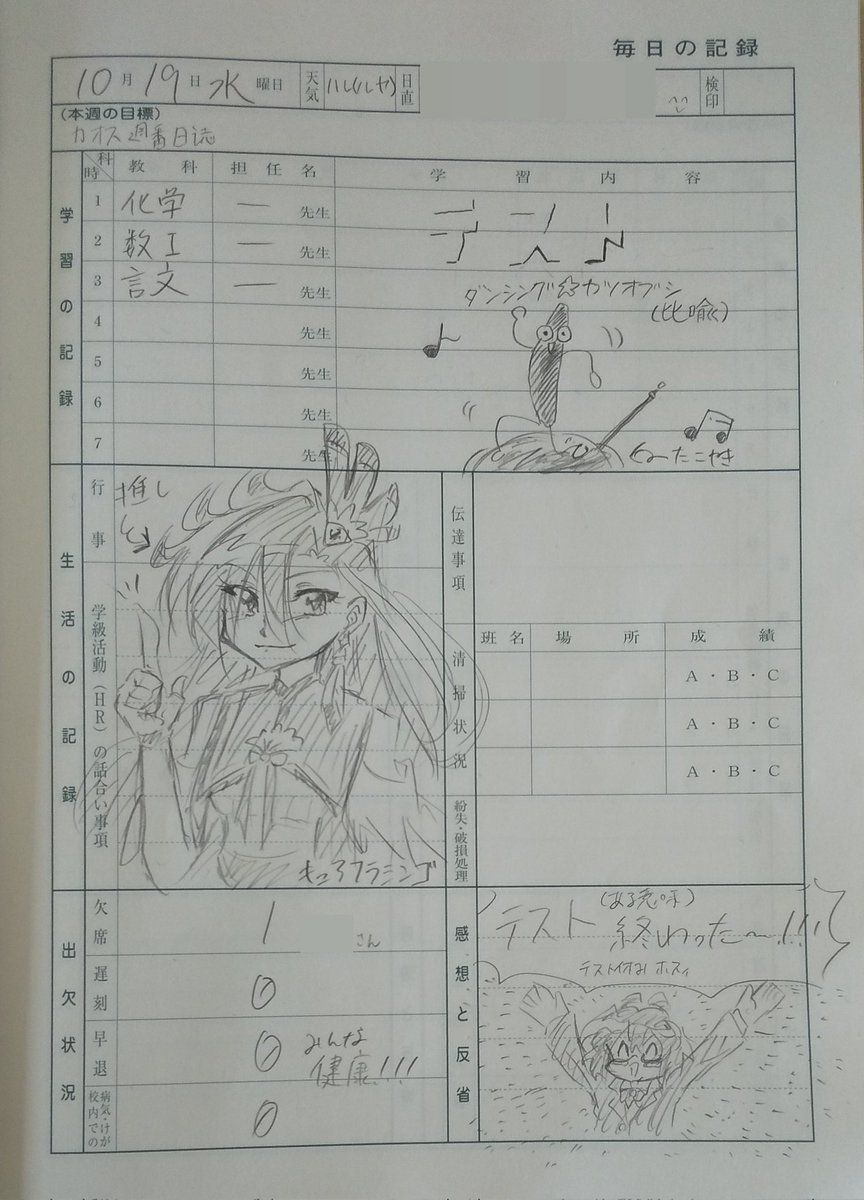 毎日の記録
10月19日 水曜日 天気 ハレ(ハレヤ) 日直 検印
(本週の目標)
カオス週番日誌
学習の記録
科 時 教科 担任名 学習内容
1 化学 ― 先生
2 数I ― 先生 テスト
3 言文 ― 先生
ダンシング☆カツオブシ
(比喩)
4 先生
5 先生
6 先生
7 先生
たこやき
生活の記録
行事
推し
学級活動(HR)の話合い事項
フラミンゴ
伝達事項
清掃状況
班名 場所 成績
A・B・C
A・B・C
A・B・C
紛失・破損処理
出欠状況
欠席 1 さん
遅刻 0
早退 0
みんな
健康!!!
病気・けが
校内での 0
感想と反省
(ある意味)
テスト 終わった〜!!!